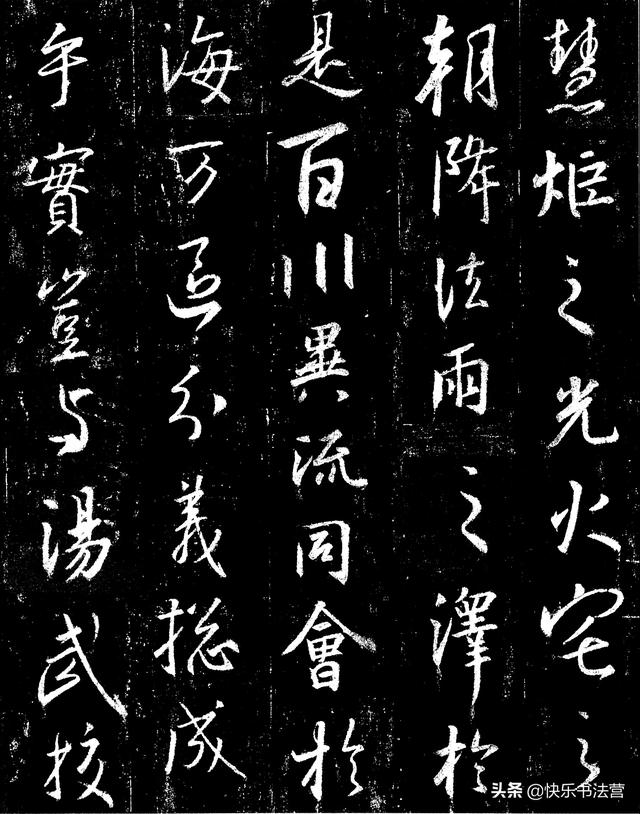 慧炬之光火宅之
朝降法雨之澤於
是百川異流同會於
海万區分義揔成
乎實豈与湯武校
头条 @快乐书法营